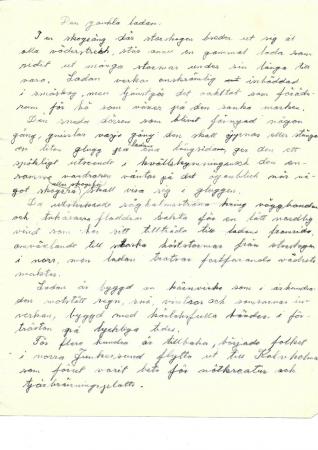 Den gamla ladan.
I en skogsäng där storskogen breder ut sig åt
alla väderstreck, står ännu en gammal lada som
ridit ut många stormar under sin långa till
varo. Ladan verkar oansenlig inbäddad
i småskog, men tjänstgör det oaktat som förråds
rum för hö som växer på den sanka marken.
Den sneda dörren som blivit försedd någon
gång, gnisslar varje gång den skall öppnas eller stängas
en liten glugg på ladans ena långsida, ger den ett
spökligt utseende i kvällsskymningen den en
samme vandraren väntar på det ögonblick när nå
got skogsrå eller skogsfru skall visa sig i gluggen.
De söghalmstråna kring väggbanden
och takåsarna fladdrar sakta för en lätt nordlig
vind som har sitt tillträde till ladans framsida,
omväxlande till starka höststormar från storskogen
i norr, men ladan trotsar fortfarande vädrets
makter.
Ladan är byggd av kärnvirke som i århundra
den motstått regn, snö, vintrar och somrarnas in
verkan, byggd med kärleksfulla händer i för
tröstan på lyckliga tider.
För flera hundra år tillbaka, började folket
i norra sund flytta ut till Kalvholma
som förut varit bete för nötkreatur och
tjärbränningsplats.